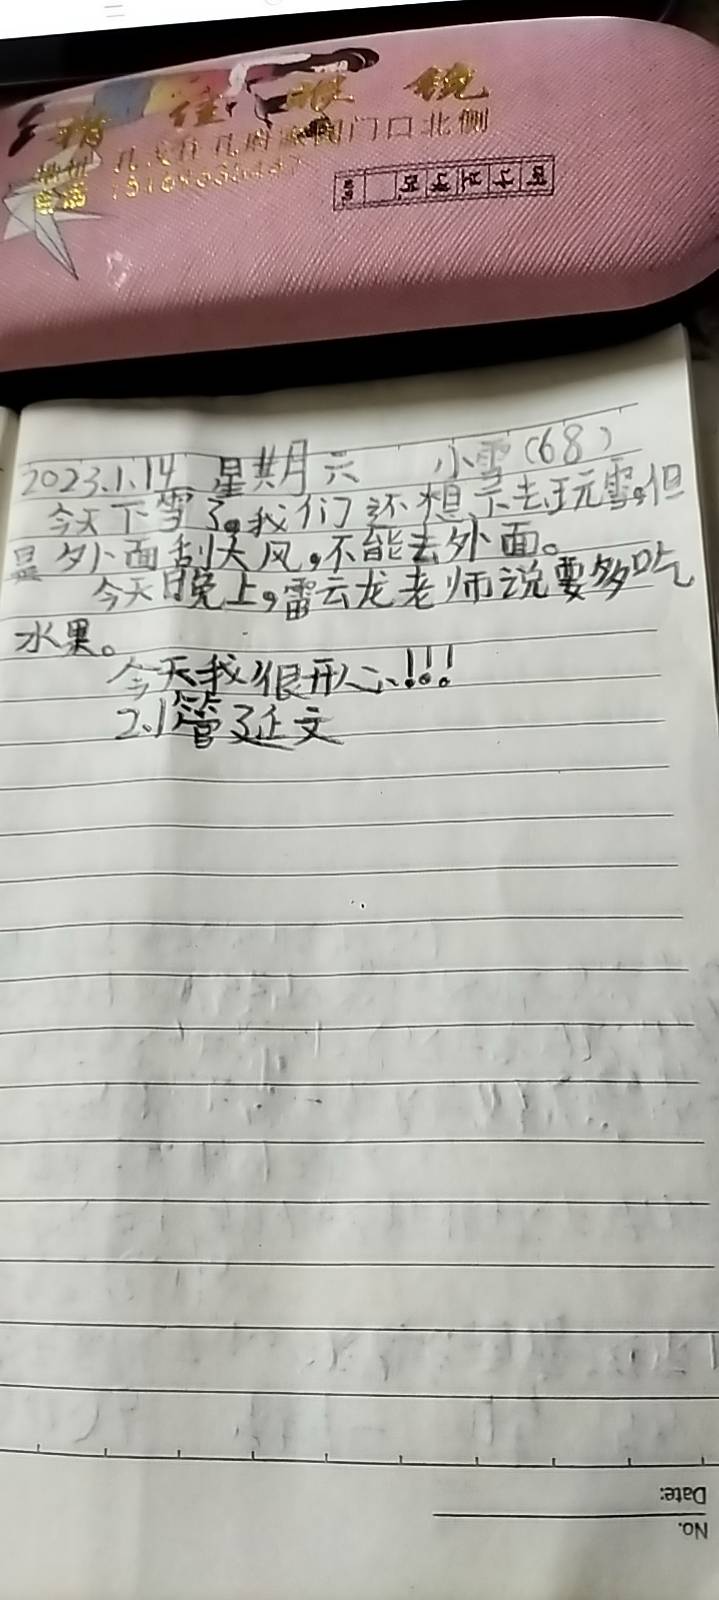 眼 镜
门口北侧
2023.1.14 星期六 小雪(68)
今天下雪了。我们还想下去玩雪,但
是外面刮大风,不能去外面。
今天晚上,雷云龙老师说要多吃
水果。
今天我很开心!!!
2.1管延文
Date:
No.